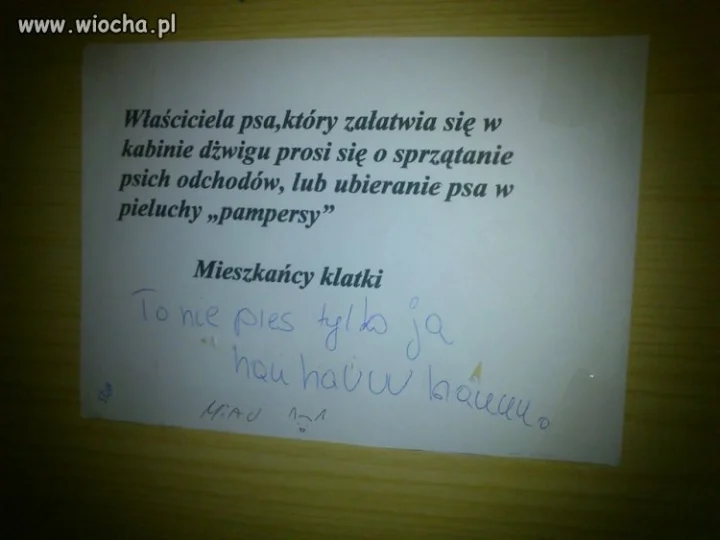 www.wiocha.pl
Właściciela psa,który załatwia się w
kabinie dżwigu prosi się o sprzątanie
psich odchodów, lub ubieranie psa w
pieluchy „pampersy”
Mieszkańcy klatki
To nie pies tylko ja
hau hauuu hauuuu.
MIAU